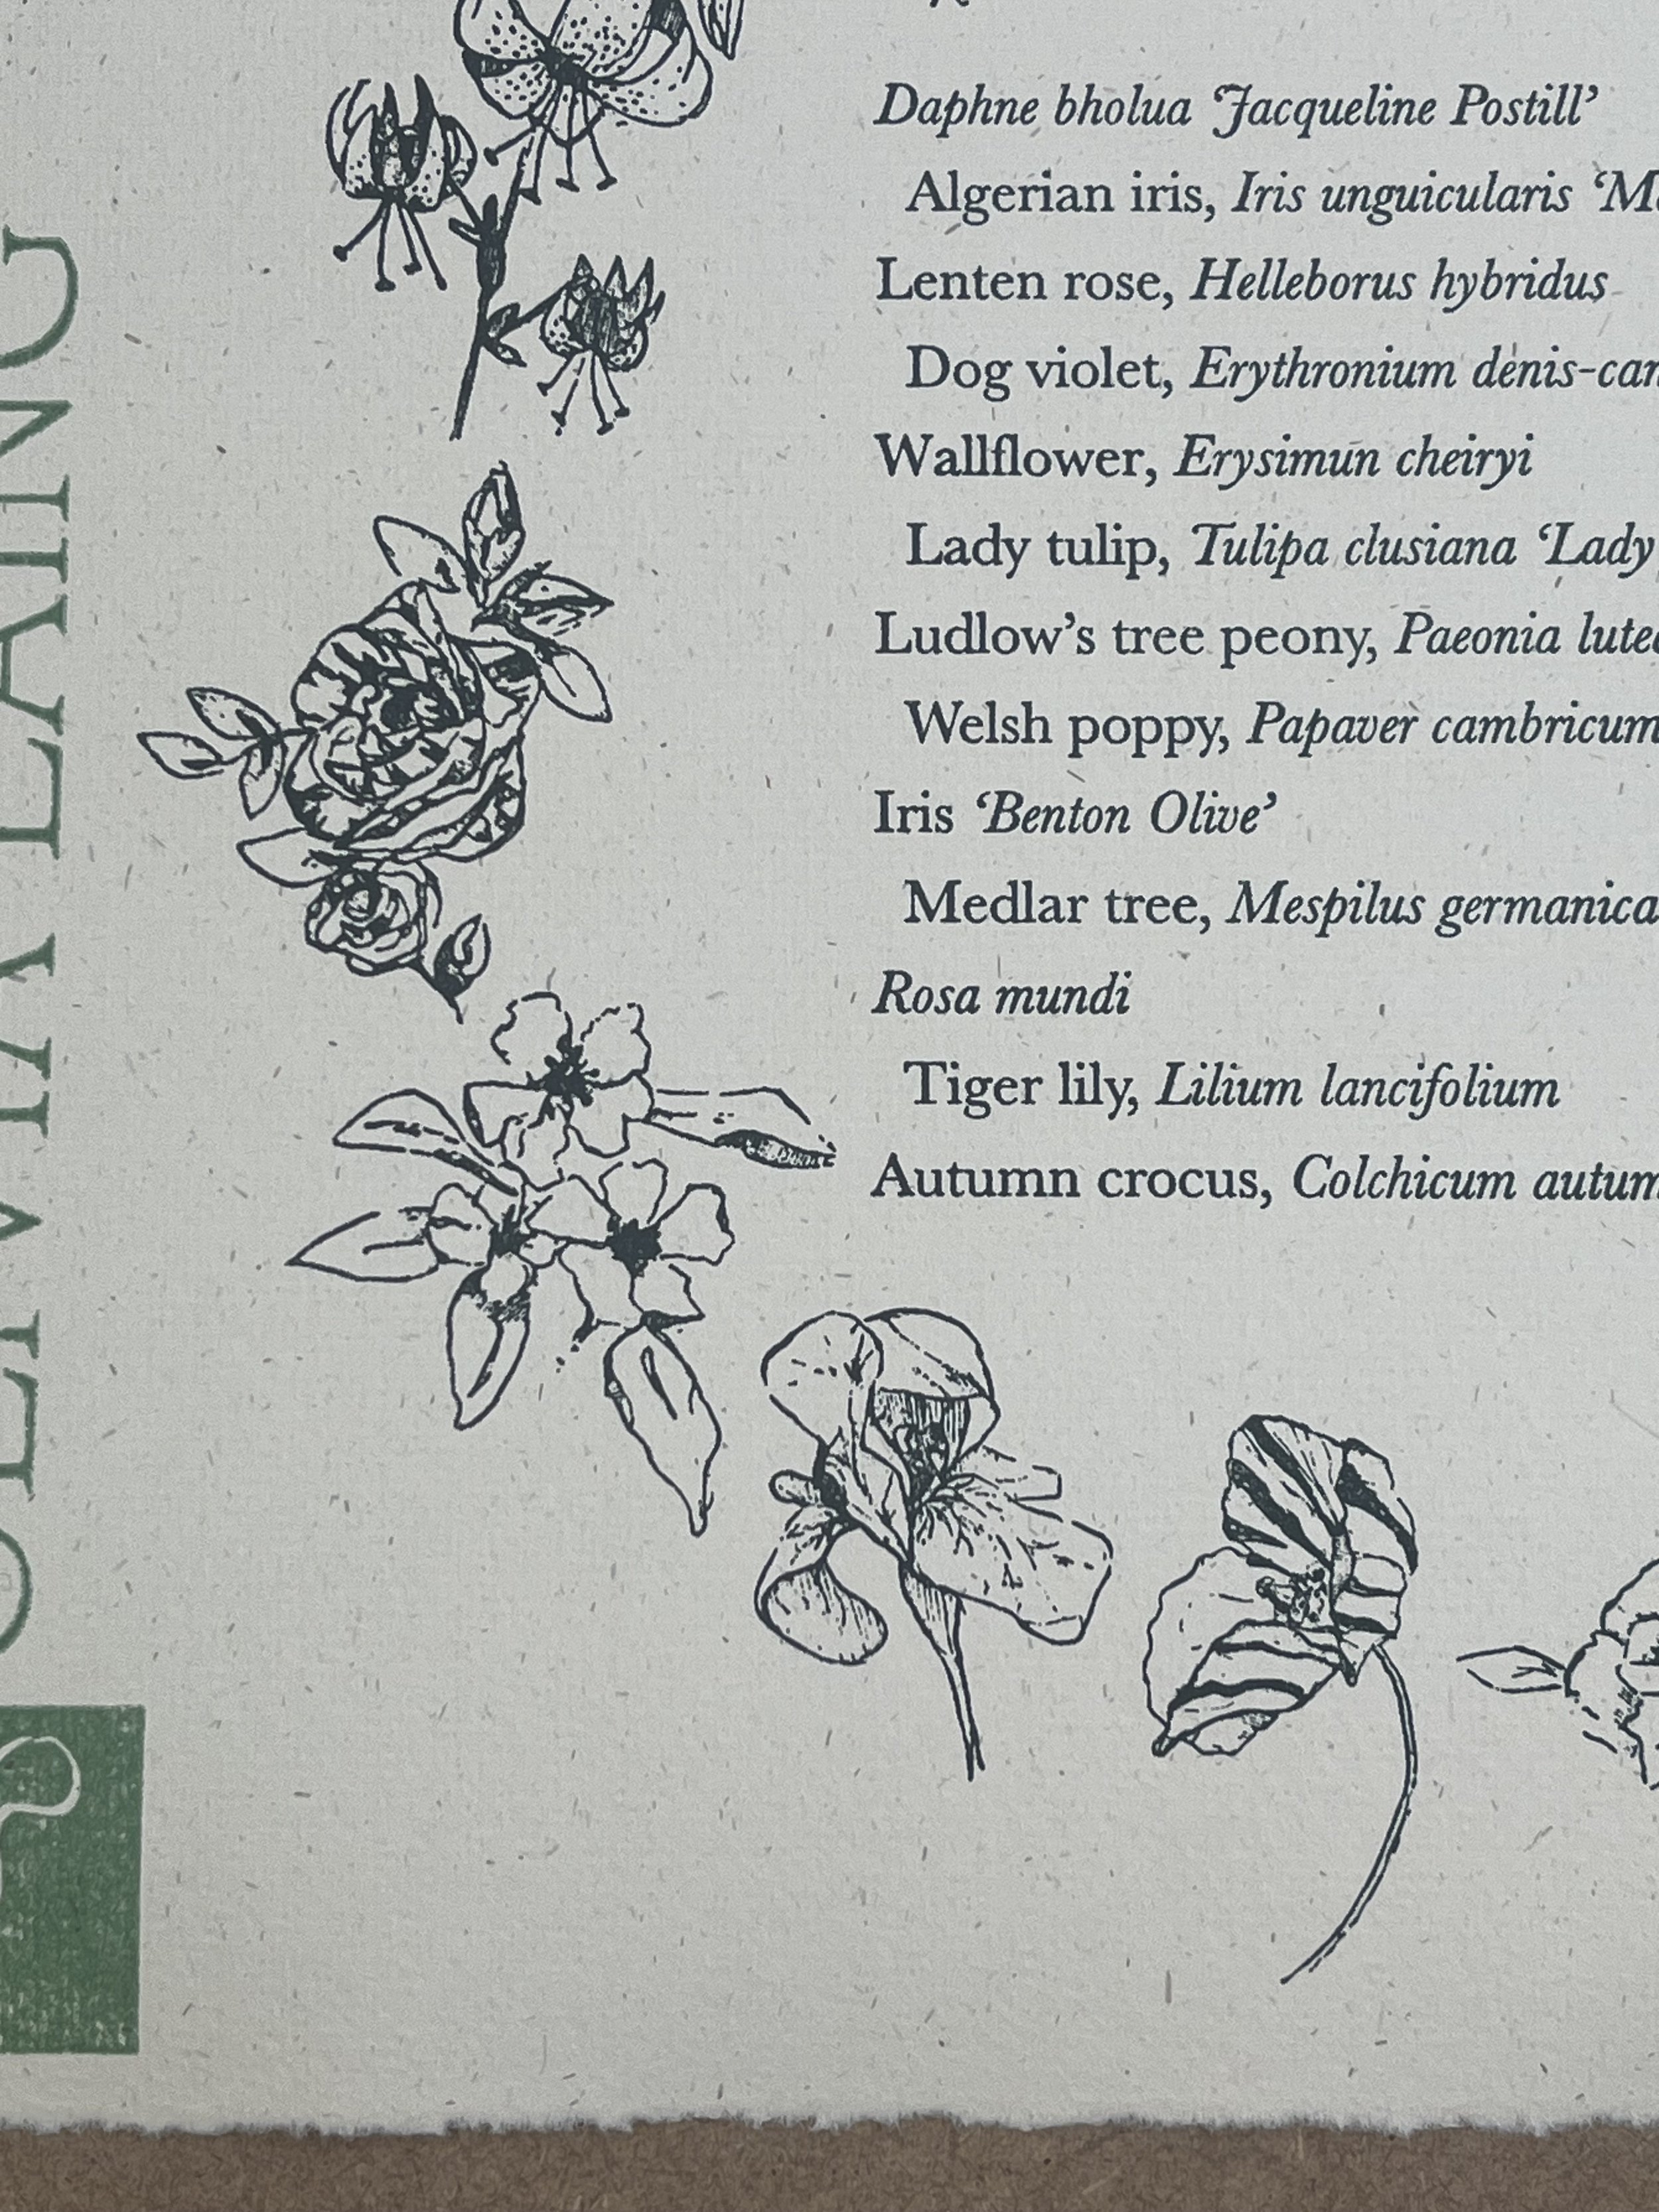 Daphne bholua ‘Jacqueline Postill’
Algerian iris, Iris unguicularis
Lenten rose, Helleborus hybridus
Dog violet, Erythronium
Wallflower, Erysimun cheiryi
Lady tulip, Tulipa clusiana ‘Lady
Ludlow’s tree peony, Paeonia
Welsh poppy, Papaver cambricum
Iris ‘Benton Olive’
Medlar tree, Mespilus germanica
Rosa mundi
Tiger lily, Lilium lancifolium
Autumn crocus, Colchicum
LAING